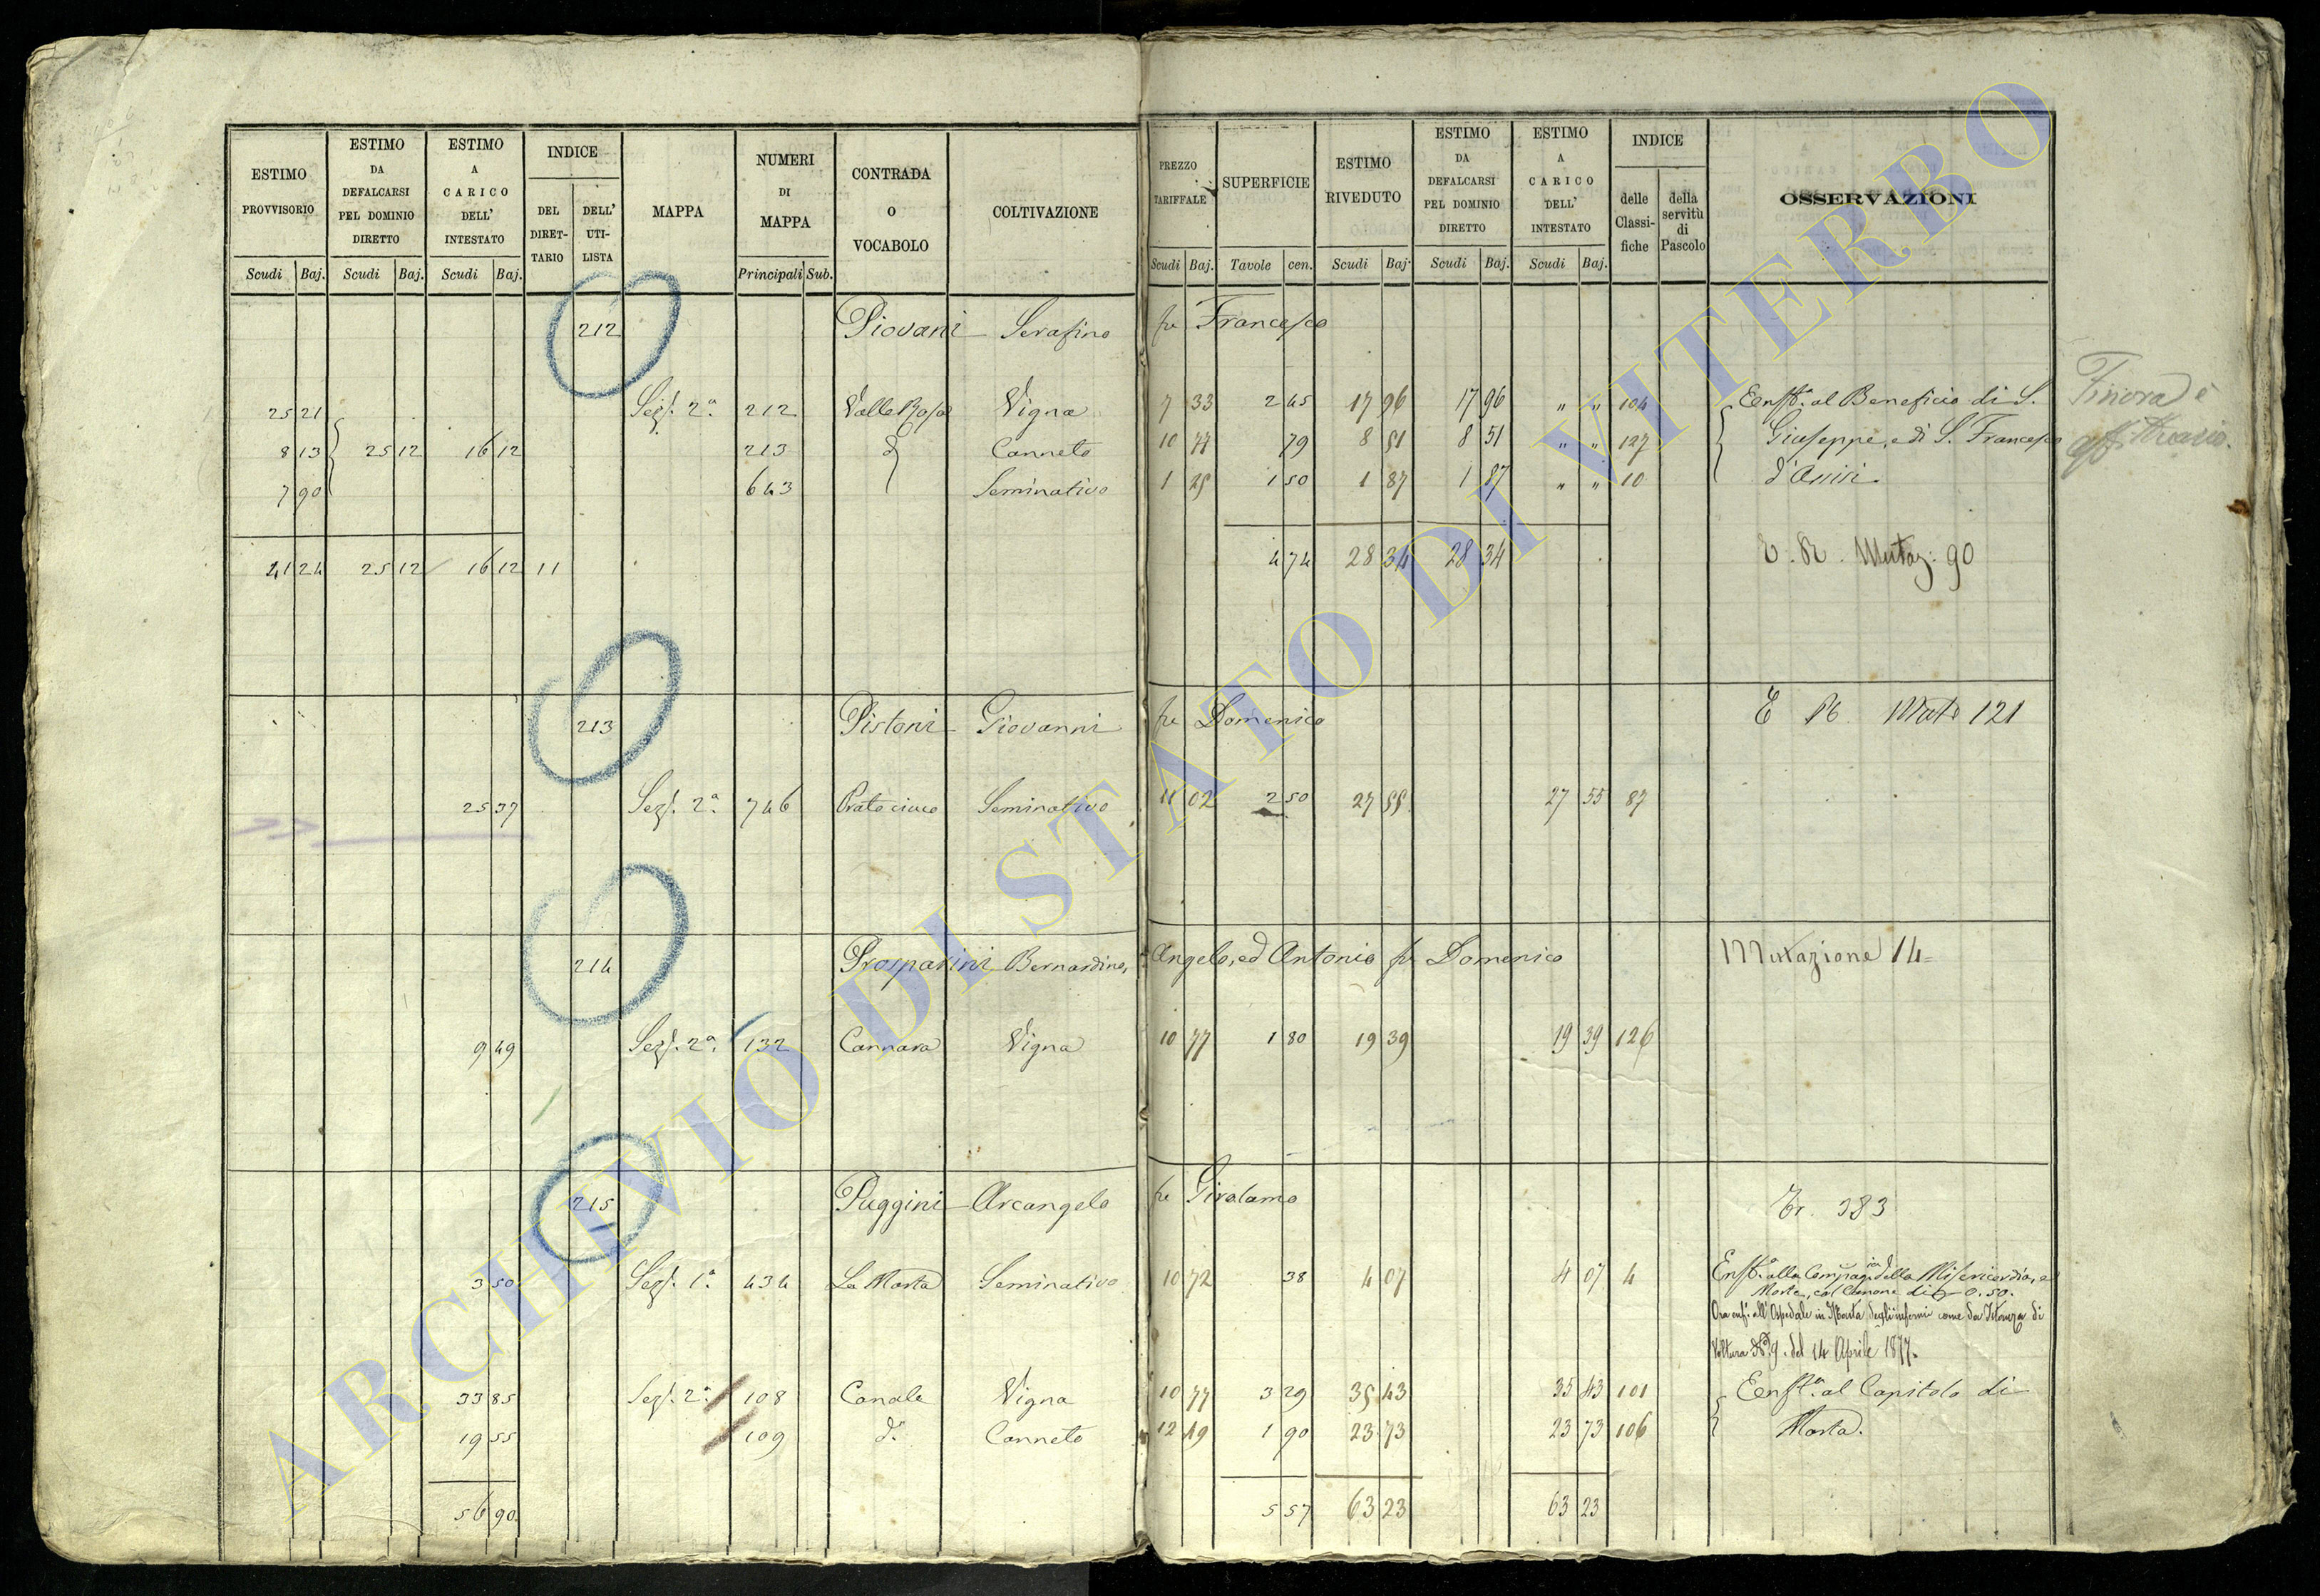 ESTIMO PROVVISORIO | ESTIMO DA DEFALCARSI PEL DOMINIO DIRETTO | ESTIMO A CARICO DELL' INTESTATO | INDICE DEL DIRET-TARIO | DELL' UTI-LISTA | MAPPA | NUMERI DI MAPPA | CONTRADA O VOCABOLO | COLTIVAZIONE | PREZZO TARIFFALE | SUPERFICIE | ESTIMO RIVEDUTO | ESTIMO DA DEFALCARSI PEL DOMINIO DIRETTO | ESTIMO A CARICO DELL' INTESTATO | INDICE delle Classi-fiche | della servitù di Pascolo | OSSERVAZIONI
Scudi Baj. Scudi Baj. Scudi Baj. Principali Sub. Scudi Baj. Tavole cen. Scudi Baj. Scudi Baj. Scudi Baj.
212 Piovani Serafino fu Francesco
25 21 Sez. 2ª 212 Valle Rosa Vigna 7 33 2 45 17 96 17 96 " " 104 Enfta. al Beneficio di S. Finora è
8 13 25 12 16 12 213 d Canneto 10 77 79 8 51 8 51 " " 127 Giuseppe, e di S. Francesco
7 90 643 Seminativo 1 25 1 50 1 87 1 87 " " 10 d'Assisi.
41 24 25 12 16 12 11 4 74 28 34 28 34 E. R. Mutaz: 90
213 Pistoni Giovanni fu Domenico E R Mat 121
25 37 Sez. 2ª 746 Seminativo 11 02 2 50 27 55 27 55 87
214 Prosparini Bernardino, Angelo, ed Antonio fu Domenico Mutazione 14
9 49 Sez. 2ª 132 Cannara Vigna 10 77 1 80 19 39 19 39 126
215 Puggini Arcangelo fu Girolamo 383
3 50 Sez. 1ª 434 La Marta Seminativo 10 72 38 4 07 4 07 4 Enfta. alla Compagnia della Misericordia, e
Morte, col Canone di 0.50.
Ora enf. all'Ospedale in Marta degli infermi come da Istanza di
Voltura N° 9 del 14 Aprile 1877.
33 85 Sez. 2ª 108 Canale Vigna 10 77 3 29 35 43 35 43 101 Enfta. al Capitolo di
19 55 109 d° Canneto 12 49 1 90 23 73 23 73 106 Marta.
56 90 5 57 63 23 63 23
ARCHIVIO DI STATO DI VITERBO